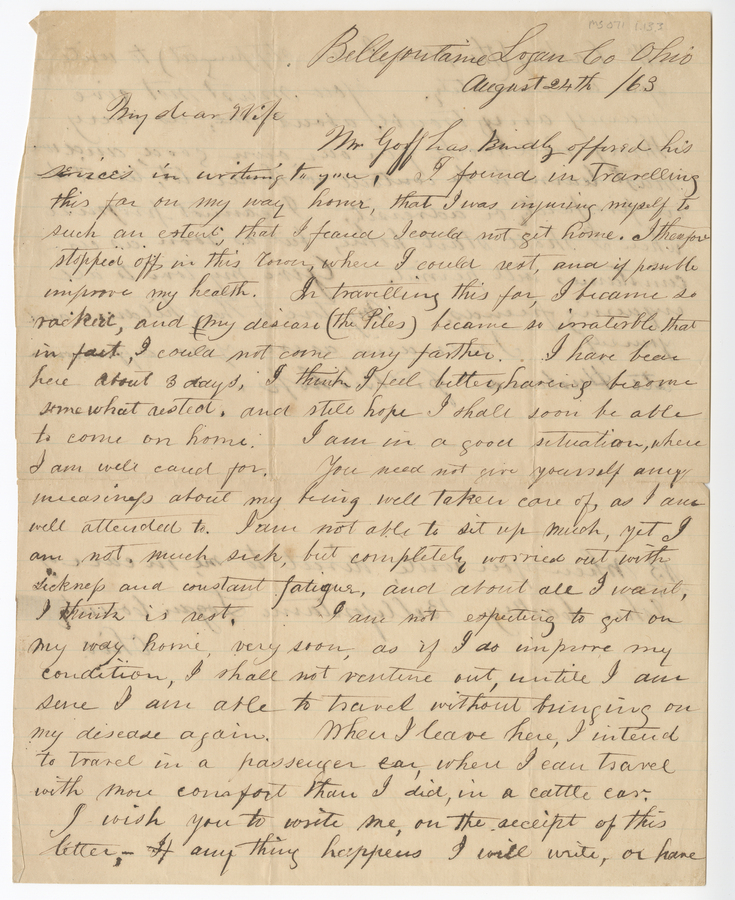 MS 071 1.13.3
Bellefontaine Logan Co Ohio
August 24th /63
My dear Wife
Mr Goff has kindly offered his
services in writing to you, I found in travelling
this far on my way home, that I was injuring myself to
such an extent, that I feared I could not get home. I therefore
stopped off in this town, where I could rest, and if possible
improve my health. In travelling this far I became so
racked, and my desiese (the Piles) became so irratible that
in fact, I could not come any farther. I have bean
here about 3 days, I think I feel better, having become
somewhat rested, and still hope I shall soon be able
to come on home. I am in a good situation, where
I am well cared for. You need not give yourself any
uneasiness about my being well taken care of, as I am
well attended to. I am not able to sit up much, yet I
am not much sick, but completely worried out with
sickness and constant fatigue, and about all I want,
I think is rest. I am not expecting to get on
my way home, very soon, as if I do improve my
condition, I shall not venture out, untile I am
sure I am able to travel without bringing on
my disease again. When I leave here, I intend
to travel in a passenger car, where I can travel
with more comfort than I did, in a cattle car.
I wish you to write me, on the receipt of this
letter, - If any thing happens I will write, or have